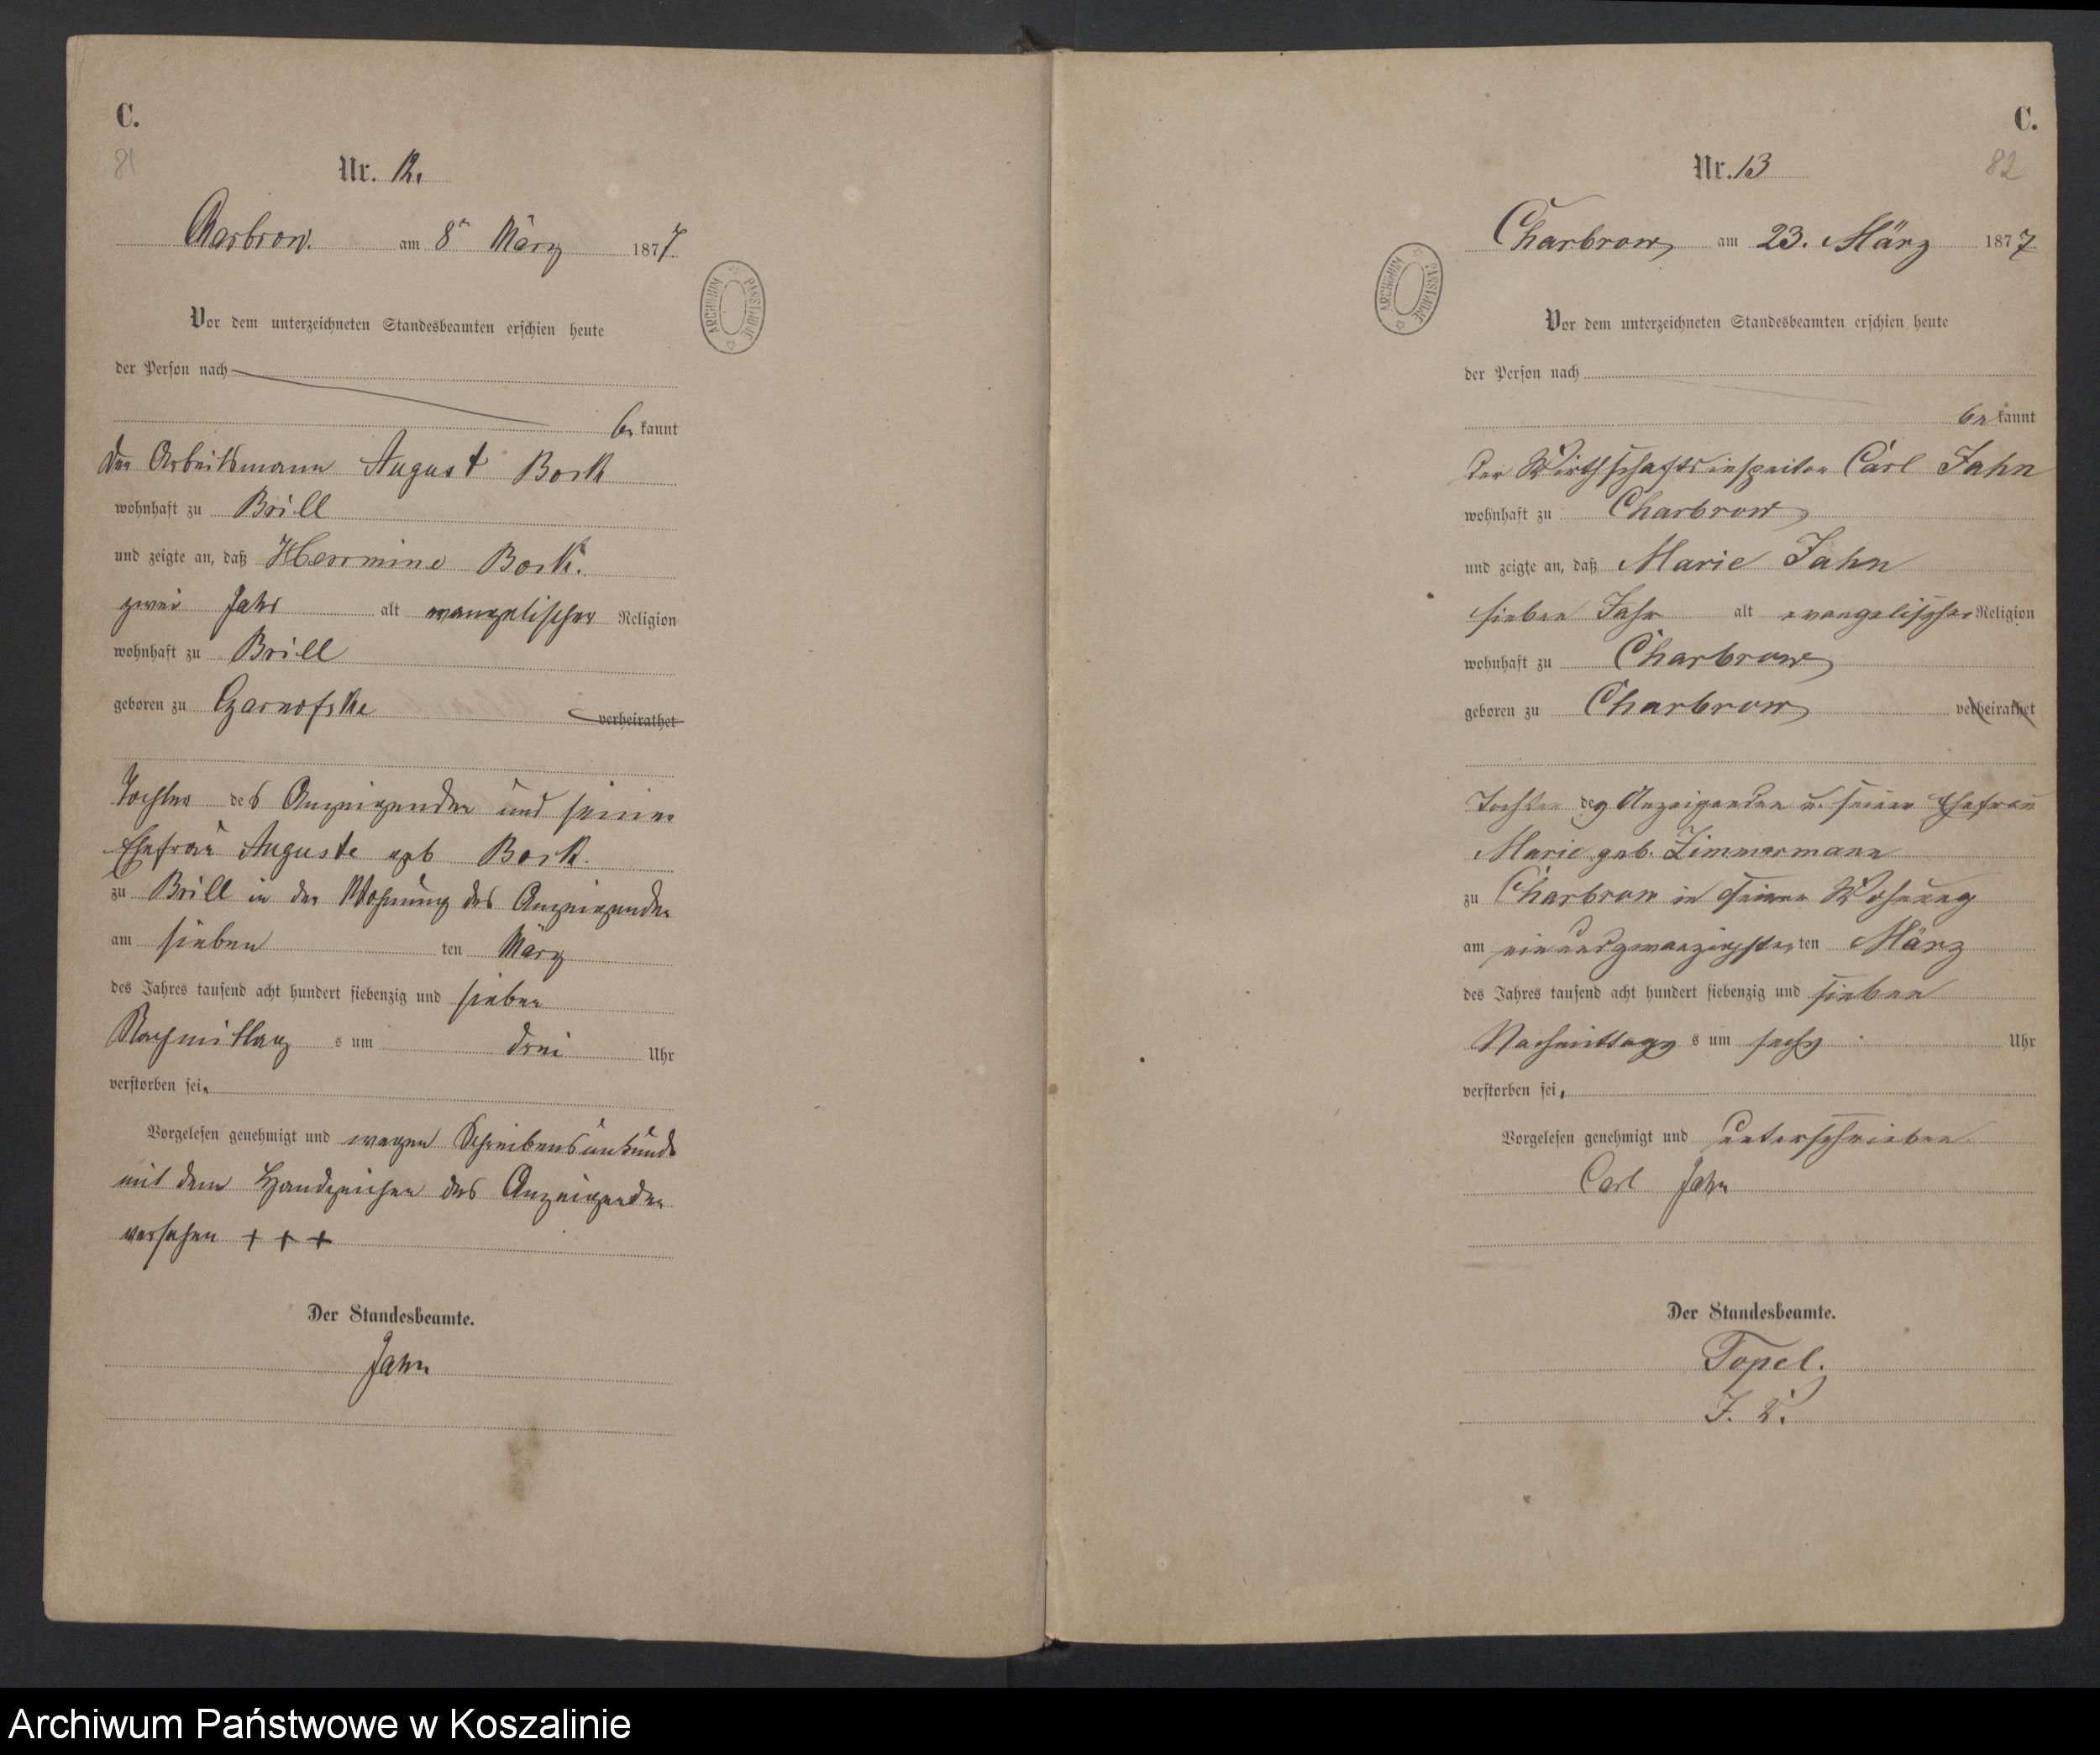 C.
81
Nr. 12.
Charbrow. am 8n März 1877.
Vor dem unterzeichneten Standesbeamten erschien heute
der Person nach
be kannt
der Arbeitsmann August Bork
wohnhaft zu Brill
und zeigte an, daß Hermine Bork.
zwei Jahr alt evangelischer Religion
wohnhaft zu Brill
geboren zu Czarnofske verheirathet
Tochter des Anzeigenden und seiner
Ehefrau Auguste geb Bork.
zu Brill in der Wohnung des Anzeigenden
am sieben ten März
des Jahres tausend acht hundert siebenzig und sieben
Nachmittag s um drei Uhr
verstorben sei.
Vorgelesen genehmigt und wegen Schreibensunkunde
mit dem Handzeichen des Anzeigenden
versehen + + +
Der Standesbeamte.
Jahn
ARCHIWUM PAŃSTWOWE
C.
82
Nr. 13
Charbrow am 23. März 1877
Vor dem unterzeichneten Standesbeamten erschien heute
der Person nach
be kannt
der Wirthschaftsinspector Carl Jahn
wohnhaft zu Charbrow
und zeigte an, daß Marie Jahn
sieben Jahr alt evangelischer Religion
wohnhaft zu Charbrow
geboren zu Charbrow verheirathet
Tochter des Anzeigenden u. seiner Ehefrau
Marie geb. Zimmermann
zu Charbrow in seiner Wohnung
am einundzwanzigsten ten März
des Jahres tausend acht hundert siebenzig und sieben
Nachmittags s um sechs Uhr
verstorben sei.
Vorgelesen genehmigt und unterschrieben
Carl Jahn
Der Standesbeamte.
Topel.
J. V.
ARCHIWUM PAŃSTWOWE
Archiwum Państwowe w Koszalinie